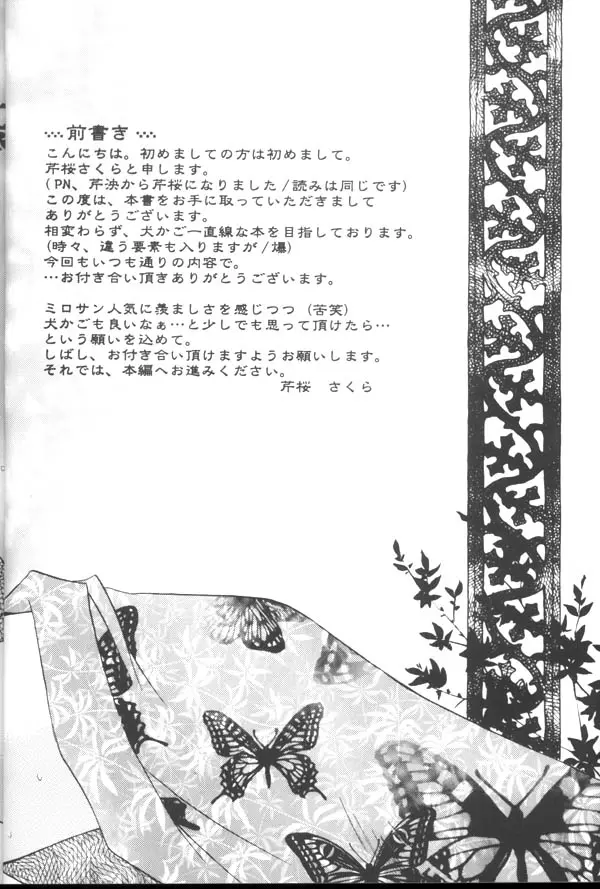 前書き
こんにちは。初めましての方は初めまして。
芹桜さくらと申します。
(PN、芹泱から芹桜になりました/読みは同じです)
この度は、本書をお手に取っていただきまして
ありがとうございます。
相変わらず、犬かご一直線な本を目指しております。
(時々、違う要素も入りますが/爆)
今回もいつも通りの内容で。
…お付き合い頂きありがとうございます。
ミロサン人気に羨ましさを感じつつ (苦笑)
犬かごも良いなぁ…と少しでも思って頂けたら…
という願いを込めて。
しばし、お付き合い頂けますようお願いします。
それでは、本編へお進みください。
芹桜 さくら